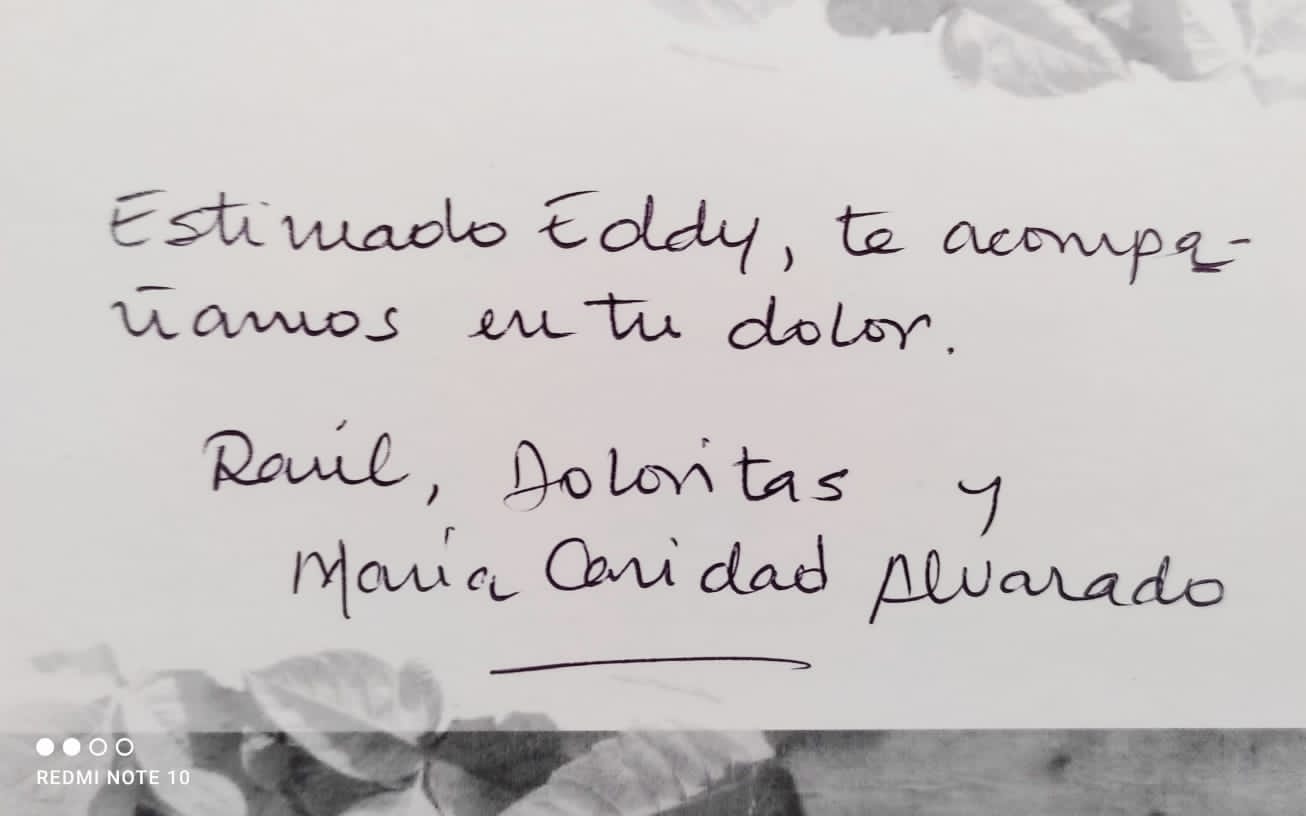 Estimado Eddy, te acompa-
ñamos en tu dolor.
Raúl, Doloritas y
María Caridad Alvarado
REDMI NOTE 10